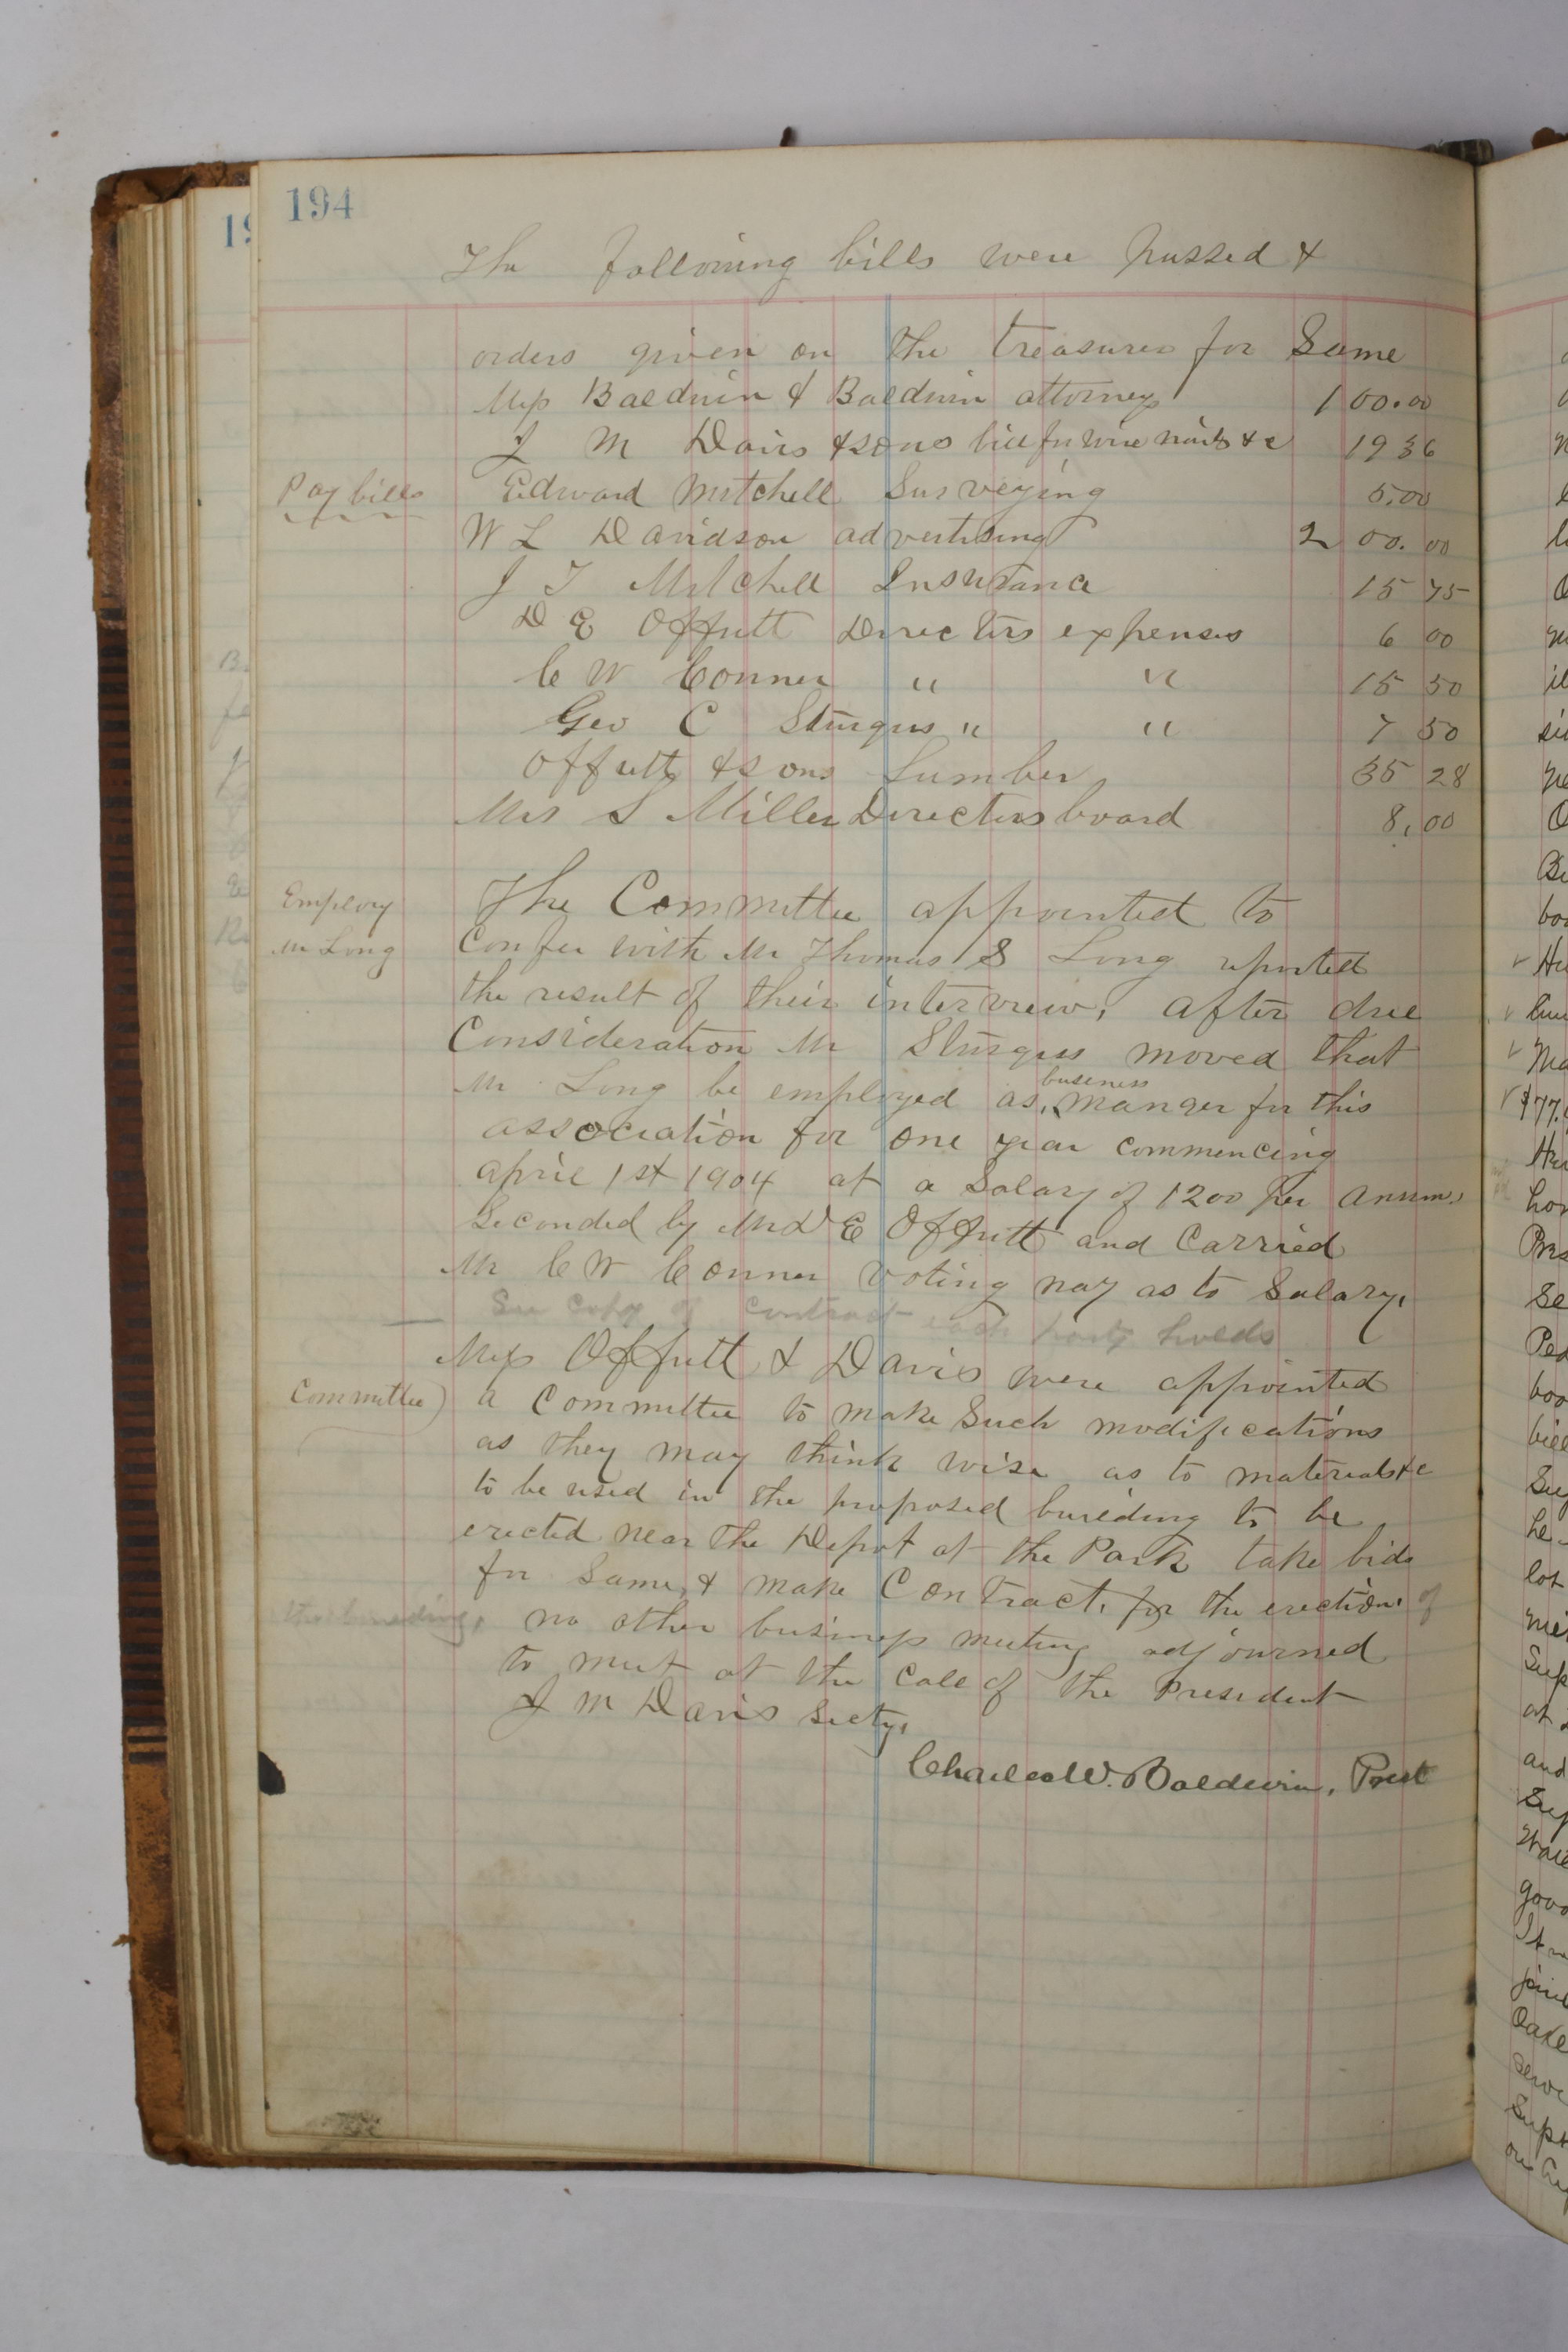 194
The following bills were passed &
orders given on the treasurer for Same
Mess Baldwin & Baldwin attorneys 100.00
J M Davis & sons bill for wire nails &c 19 36
Pay bills
Edward Mitchell Surveying 5.00
W L Davidson advertising 200.00
J T Mitchell Insurance 15 75
D E Offutt Directors expenses 6 00
C W Conner " " 15 50
Geo C Sturgiss " " 7 50
Offutts & sons Lumber 35 28
Mrs S Miller Directors board 8,00
Employ
Mr Long
The Committee appointed to
Confer with Mr Thomas S Long reported
the result of their interview, after due
Consideration Mr Sturgiss moved that
Mr Long be employed as, business manger for this
association for one year commencing
april 1st 1904 at a Salary of 1200 per annum,
Seconded by Mr D E Offutt and Carried
Mr C W Conner voting nay as to Salary,
See copy of contract each party holds
Mess Offutt & Davis were appointed
Committee
a Committee to make Such modifications
as they may think wise as to materials &c
to be used in the proposed building to be
erected near the Depot at the Park take bids
for Same, & make Contract, for the erection, of
the building,
no other business meeting adjourned
to meet at the call of the President
J M Davis Secty,
Charles W. Baldwin, Prest